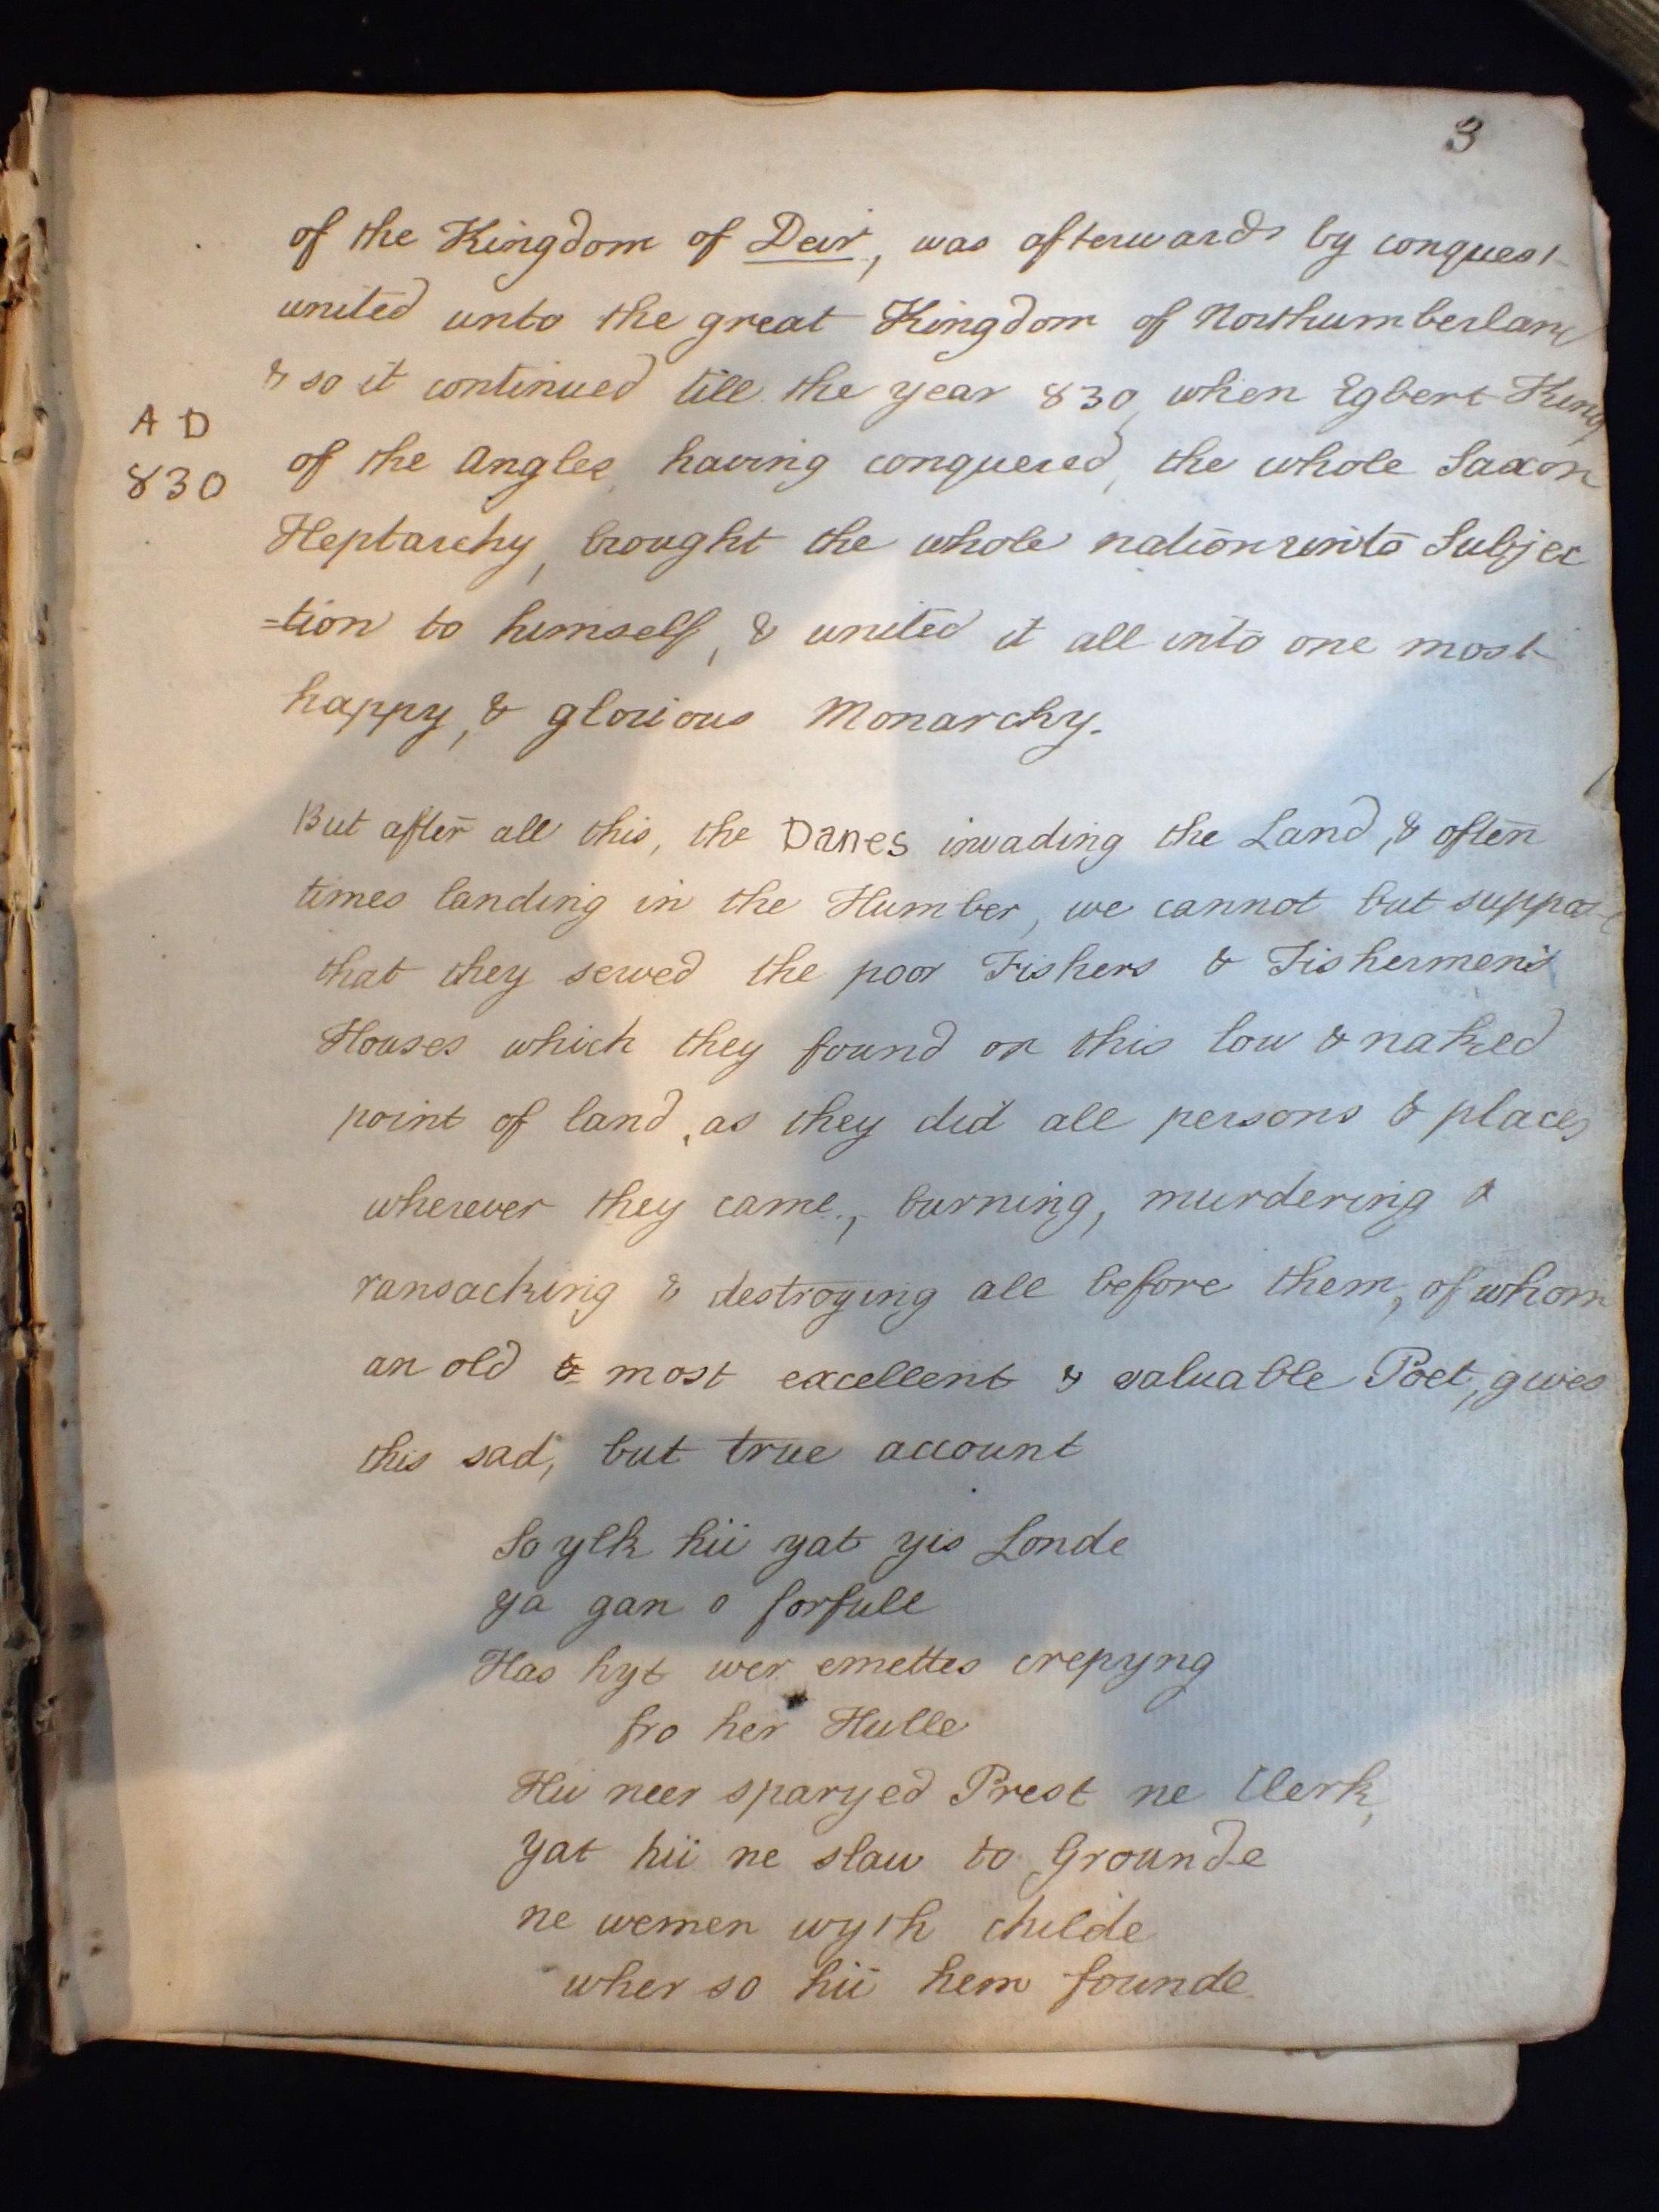 3
of the Kingdom of Deir, was afterwards by conquest
united unto the great Kingdom of Northumberland
& so it continued till the year 830, when Egbert King
A D
830
of the Angles having conquered, the whole Saxon
Heptarchy, brought the whole nation unto Subjec
=tion to himself, & united it all into one most
happy, & glorious Monarchy.
But after all this, the Danes invading the Land, & often
times landing in the Humber, we cannot but suppose
that they served the poor Fishers & Fishermen's
Houses which they found on this low & naked
point of land, as they did all persons & places
wherever they came, burning, murdering &
ransacking & destroying all before them, of whom
an old & most excellent & valuable Poet, gives
this sad, but true account
So ylk hii yat yis Londe
ya gan o forfull
Has hyt wer emettes crepyng
fro her Hulle
Hii neer sparyed Prest ne Clerk,
yat hii ne slaw to Grounde
ne wemen wyth childe
wher so hii hem founde